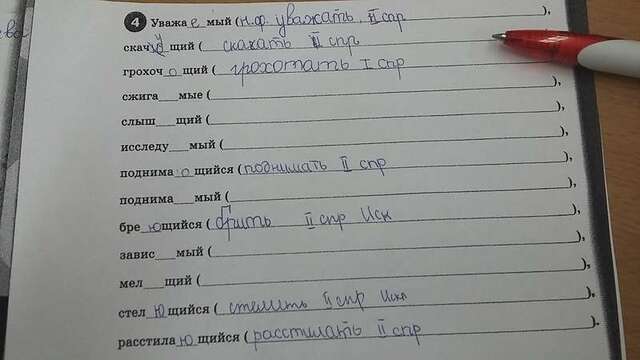 4 Уважае мый (н.ф. уважать, II спр ),
скачу щий ( скакать II спр
грохоч о щий ( грохотать I спр ),
сжига __ мые
слыш __ щий (
исследу __ мый ( ),
поднима ю щийся (поднимать II спр ),
поднима __ мый ( ),
бре ю щийся (брить II спр Иск ),
завис __ мый ( ),
мел __ щий ( ),
стел ю щийся ( стелить II спр Искл ),
расстила ю щийся (расстилать II спр ),